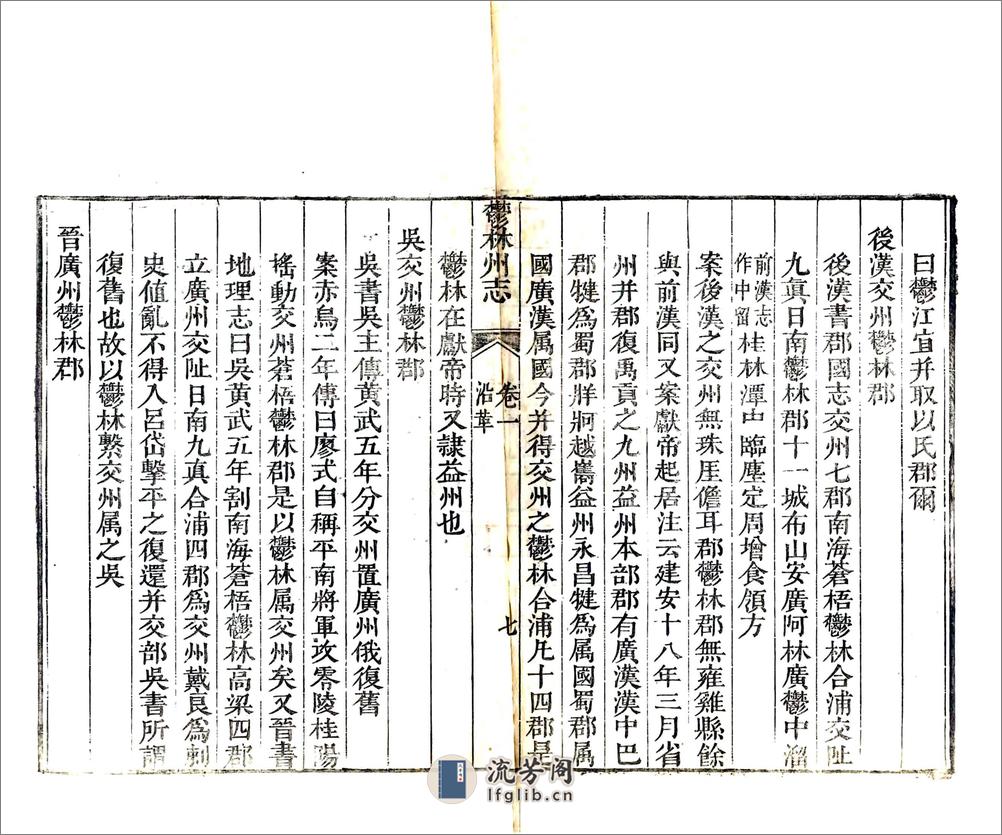 曰鬱江宜并取以氏郡爾
後漢交州鬱林郡
後漢書郡國志交州七郡南海蒼梧鬱林合浦交趾
九真日南鬱林郡十一城布山安廣阿林廣鬱中溜
前漢志作中留桂林潭中臨塵定周增食領方
案後漢之交州無珠厓儋耳郡鬱林郡無雍雞縣餘
與前漢同又案獻帝起居注云建安十八年三月省
州并郡復禹貢之九州益州本部郡有廣漢漢中巴
郡犍爲蜀郡牂牁越嶲益州永昌犍爲属國蜀郡属
國廣漢属國今并得交州之鬱林合浦凡十四郡是
鬱林州志
卷一
沿革
七
鬱林在獻帝時又隷益州也
吳交州鬱林郡
吳書吳主傳黄武五年分交州置廣州俄復舊
案赤烏二年傳曰廖式自稱平南將軍攻零陵桂陽
摇動交州蒼梧鬱林郡是以鬱林属交州矣又晉書
地理志曰吳黄武五年割南海蒼梧鬱林高梁四郡
立廣州交趾日南九真合浦四郡爲交州戴良爲刺
史値亂不得入呂岱擊平之復還并交部吳書所謂
復舊也故以鬱林繫交州属之吳
晉廣州鬱林郡
流芳阁
lfglib.cn